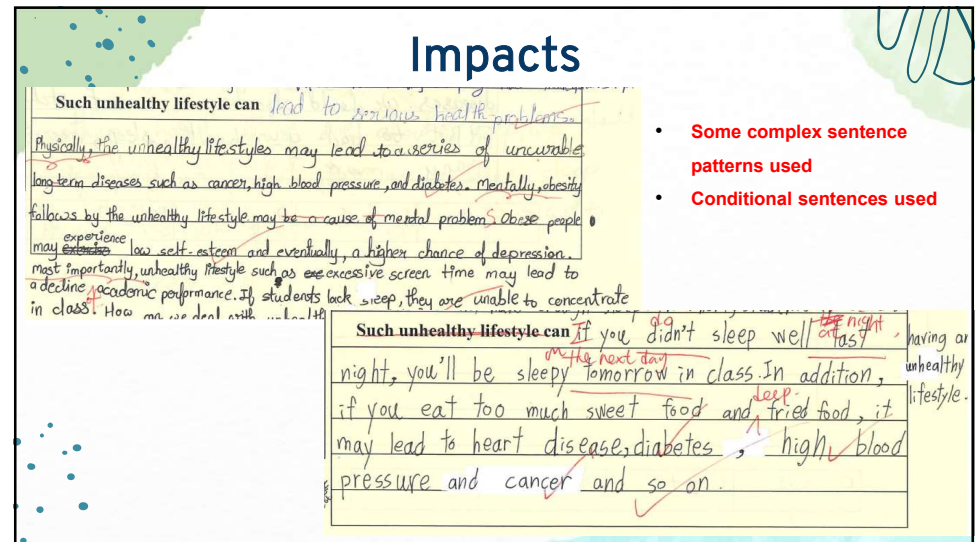 Impacts
Such unhealthy lifestyle can lead to serious health problems.
Physically, the unhealthy lifestyles may lead to a series of uncurable
long term diseases such as cancer, high blood pressure, and diabetes. Mentally, obesity
follows by the unhealthy lifestyle may be a cause of mental problem. Obese people
experience
may exercise low self-esteem and eventually, a higher chance of depression.
most importantly, unhealthy lifestyle such as exe excessive screen time may lead to
a decline academic performance. If students lack sleep, they are unable to concentrate
in class. How can we deal with
• Some complex sentence
patterns used
• Conditional sentences used
do at night
Such unhealthy lifestyle can If you didn't sleep well last having an
on the next day
night, you'll be sleepy tomorrow in class. In addition, unhealthy
deep-
if you eat too much sweet food and fried food, it lifestyle.
may lead to heart disease, diabetes , high blood
pressure and cancer and so on.